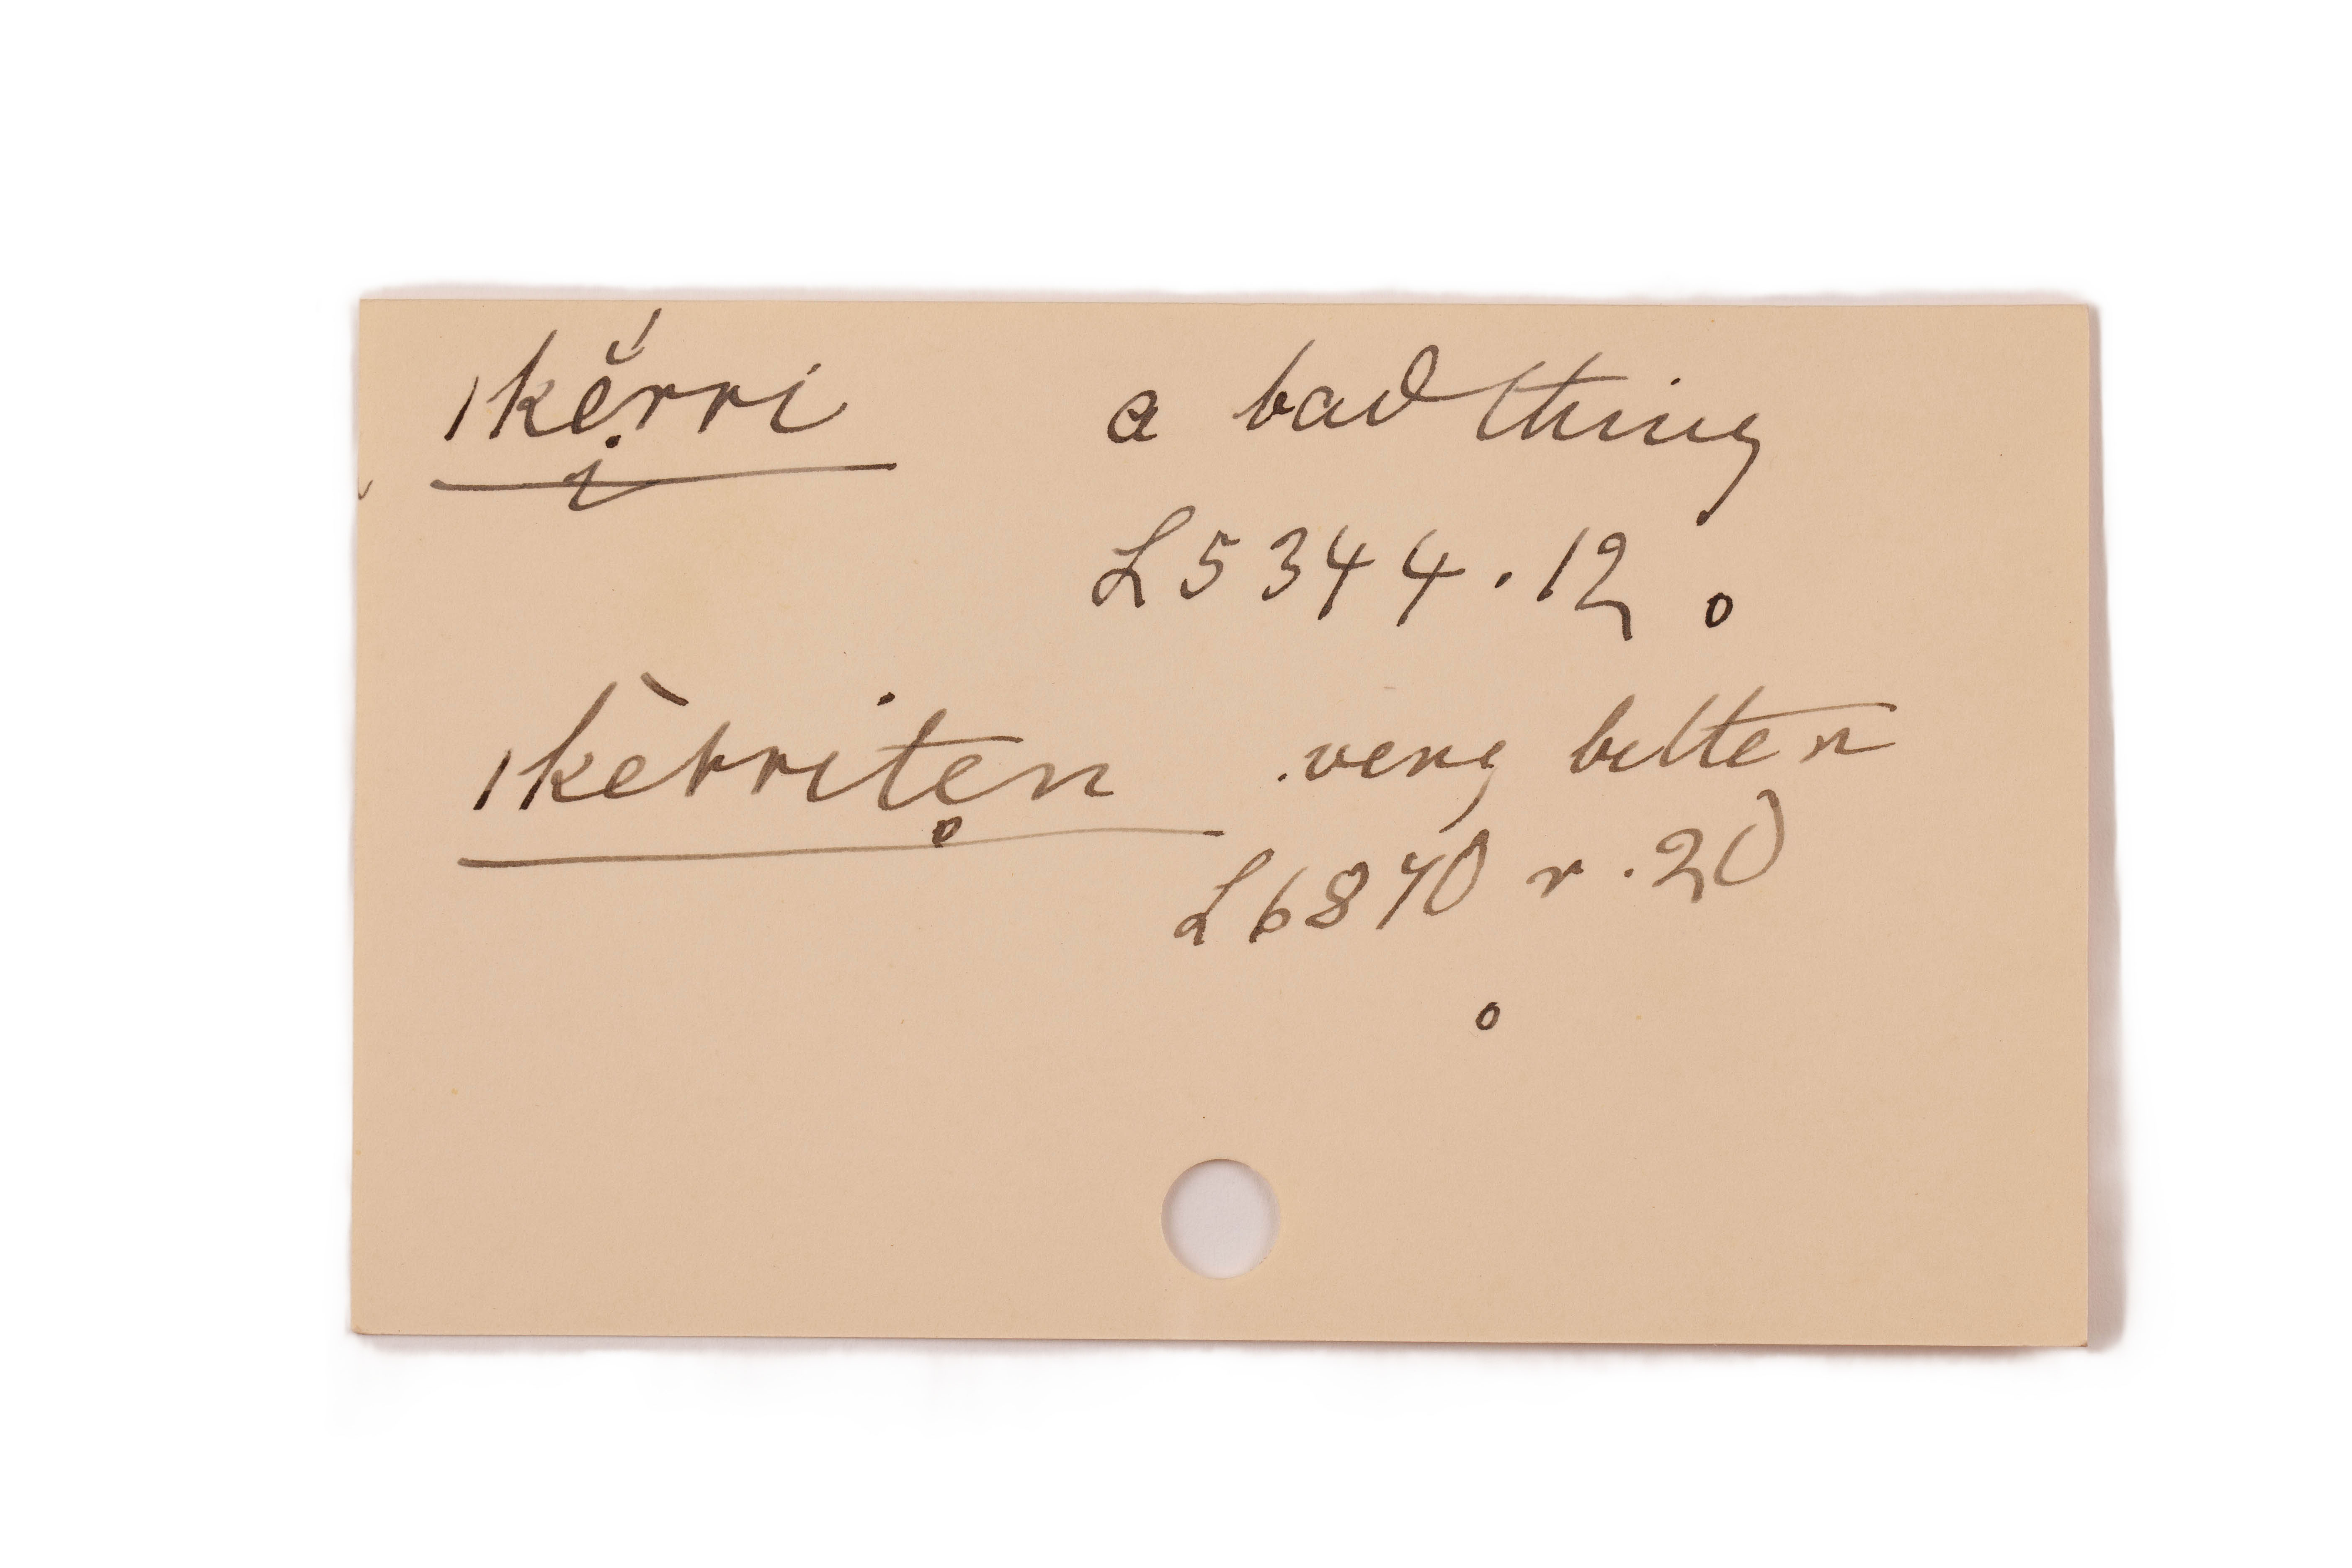 |kĕ́rri a bad thing
i
L5344.12 o
|kèrritẹn very bitter
L6870 r.20
o